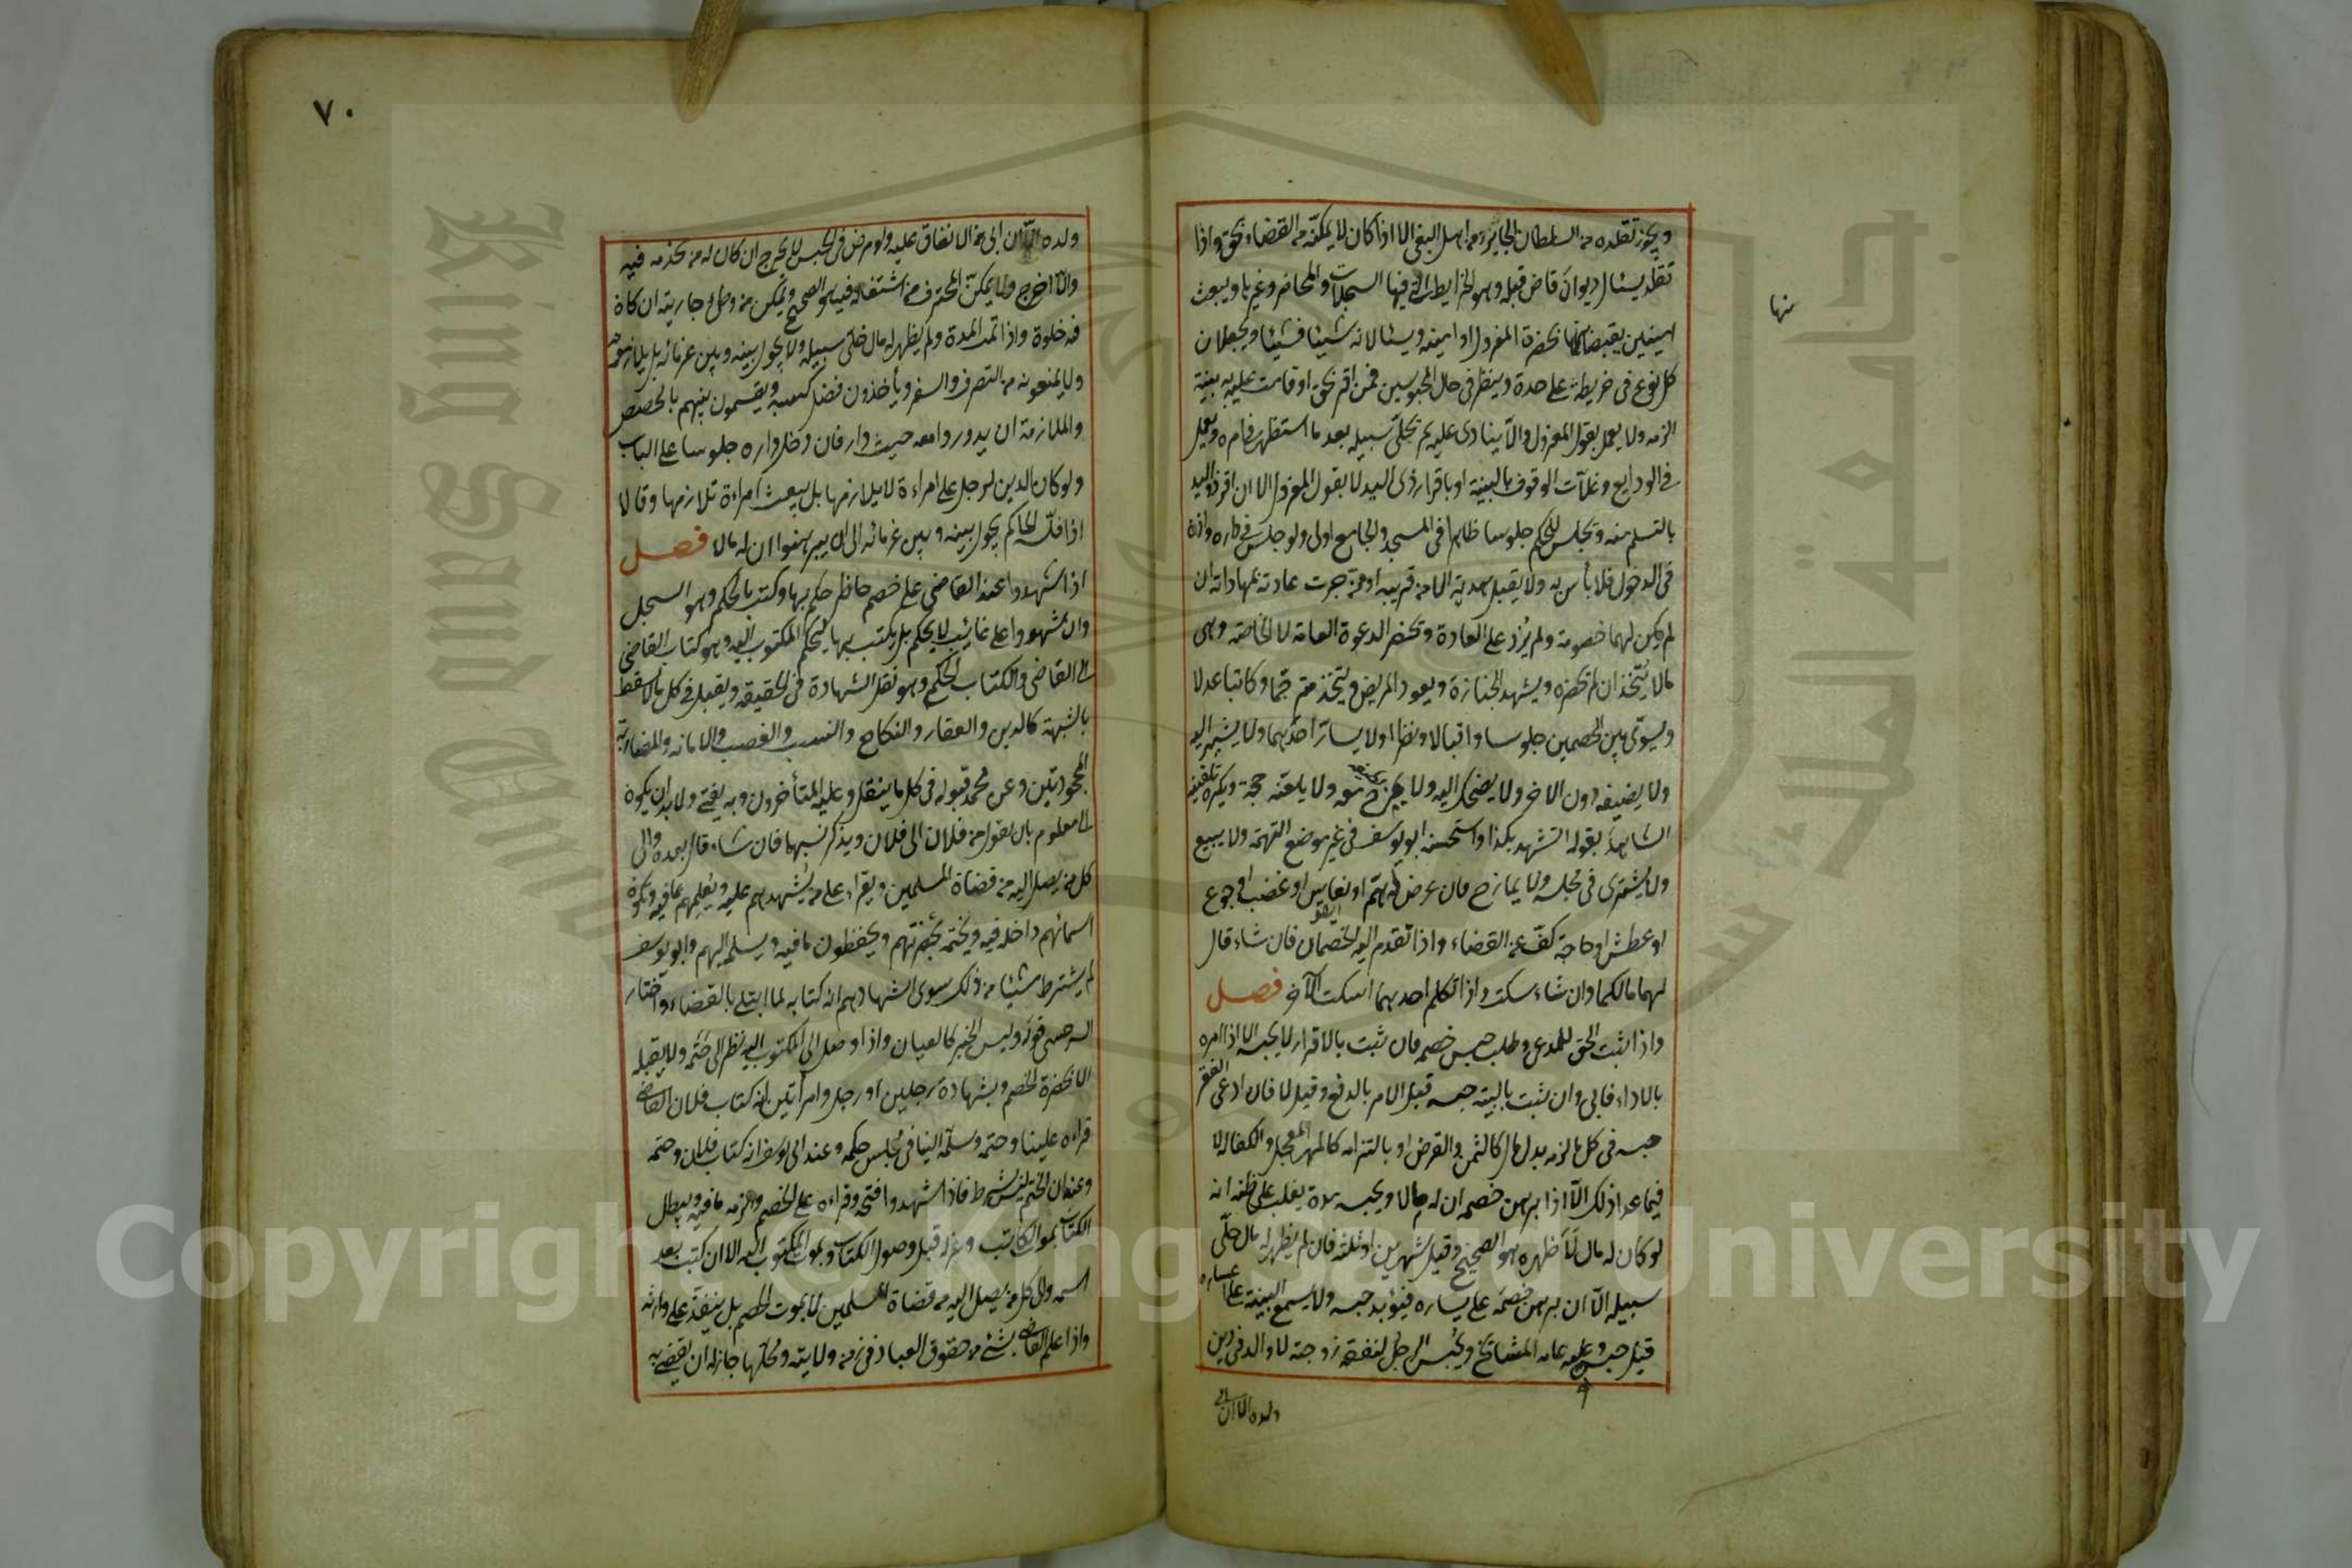 ويجوز تقلده من السلطان الجاير ومن اهل البغي الا اذا كان لا يمكنه من القضاء بحق واذا
تقلد يسئال ديوان قاض قبله وهو الخرايط التي فيها السجلات والمحاضر وغيرها ويبعث
امينين يقبضانها بحضرة المعزول او امينه ويسئالانه شيئا فشيئا ويجعلان
كل نوع في خريطة على حدة وينظر في حال المحبوسين فمن اقر بحق او قامت عليه بينة
الزمه ولا يعمل بقول المعزول والا ينادى عليه ثم يخلى سبيله بعد ما استظهر في امره ويعمل
في الودايع وغلات الوقوف بالبينة او باقرار ذى اليد لا بقول المعزول الا ان اقر ذو اليد
بالتسلم منه ويجلس للحكم جلوسا ظاهرا في المسجد والجامع اولى ولو جلس في داره واذن
في الدخول فلا بأس به ولا يقبل هدية الا من قريبه او ممن جرت عادته بمهاداته ان
لم يكن لهما خصومة ولم يزد على العادة ويحضر الدعوة العامة لا الخاصة وهى
مالا يتخذ ان لم يحضره ويشهد الجنازة ويعود المريض ويتخذ مترجما وكاتبا عدلا
ويسوى بين الخصمين جلوسا واقبالا ونظرا ولا يسار احدهما ولا يشير اليه
ولا يضيفه دون الاخر ولا يضحك اليه ولا يمزح معه ولا يلقنه حجة ويكره تلقينه
الشاهد بقوله اتشهد بكذا واستحسنه ابو يوسف في غير موضع التهمة ولا يبيع
ولا يشترى في مجلسه ولا يمازح فان عرض له هم او نعاس او غضب او جوع
او عطش او حاجة كف عن القضاء واذا تقدم اليه الخصمان فان شاء قال
لهما مالكما وان شاء سكت واذا تكلم احدهما اسكت الآخر فصل
واذا ثبت الحق للمدعى وطلب حبس خصمه فان ثبت بالاقرار لا يحبسه الا اذا امره
بالاداء فابى وان ثبت بالبينة حبسه قبل الامر بالدفع وقيل لا فان ادعى الفقر
حبسه في كل مالزمه بدل مال كالثمن والقرض او بالتزامه كالمهر المعجل والكفالة لا
فيما عدا ذلك الا اذا برهن خصمه ان له مالا ويحبسه مدة يغلب على ظنه انه
لو كان له مال لاظهره هو الصحيح وقيل شهرين او ثلثة فان لم يظهر له مال خلى
سبيله الا ان برهن خصمه على يساره فيؤبد حبسه ولا يسمع البينة على اعساره
قبل حبسه وعليه عامة المشائخ ويحبس الرجل لنفقة زوجته لا والد في دين
ولده الا ان ابى
منها
٧٠
ولده الا ان ابى من الانفاق عليه ولو مرض في الحبس لا يخرج ان كان له من يخدمه فيه
والا اخرج ولا يمكن المحترف من اشتغاله فيه هو الصحيح ويمكن من وطئ جاريته ان كان
فيه خلوة واذا تمت المدة ولم يظهر له مال خلى سبيله ولا يحول بينه وبين غرمائه بل يلازمونه
ولا يمنعونه من التصرف والسفر ويأخذون فضل كسبه ويقسمون بينهم بالحصص
والملازمة ان يدوروا معه حيث دار فان دخل داره جلوسا على الباب
ولو كان الدين لرجل على امراءة لا يلازمها بل يبعث امراءة تلازمها وقالا
اذا فلسه الحاكم يحول بينه وبين غرمائه الى ان يبرهنوا ان له مالا فصل
اذا شهدوا عند القاضى على خصم حاضر حكم بها وكتب بالحكم وهو السجل
وان شهدوا على غائب لا يحكم بل يكتب بها ليحكم المكتوب اليه وهو كتاب القاضى
الى القاضى والكتاب الحكمى وهو نقل الشهادة في الحقيقة ويقبل في كل مالا يسقط
بالشبهة كالدين والعقار والنكاح والنسب والغصب والامانة والمضاربة
المجحودتين وعن محمد قبوله في كل ما ينقل وعليه المتأخرون وبه يفتى ولا بد ان يكون
الى معلوم بان يقول من فلان الى فلان ويذكر نسبهما فان شاء قال بعده والى
كل من يصل اليه من قضاة المسلمين ويقراء على من يشهدهم عليه ويعلمهم بما فيه ويكون
اسمائهم داخله فيه ويختمه بحضرتهم ويحفظون ما فيه ويسلمه اليهم وابو يوسف
لم يشترط شيئا من ذلك سوى اشهادهم انه كتابه لما ابتلى بالقضاء واختار
السرخسى قوله وليس الخبر كالعيان واذا وصل الى المكتوب اليه نظر الى ختمه ولا يقبله
الا بحضرة الخصم وبشهادة رجلين او رجل وامرأتين انه كتاب فلان القاضى
قراءه علينا وختمه وسلمه الينا في مجلس حكمه وعند ابى يوسف انه كتاب فلان وختمه
وعنه ان الختم ليس بشرط فاذا شهدوا فتحه وقراءه على الخصم والزمه ما فيه ويبطل
الكتاب بموت الكاتب وعزله قبل وصول الكتاب وبموت المكتوب اليه الا ان كتب بعد
اسمه والى كل من يصل اليه من قضاة المسلمين لا بموت الخصم بل ينفذ على وارثه
واذا علم القاضى بشئ من حقوق العباد في زمن ولايته ومحلها جاز له ان يقضى به
Copyright © King Saud University